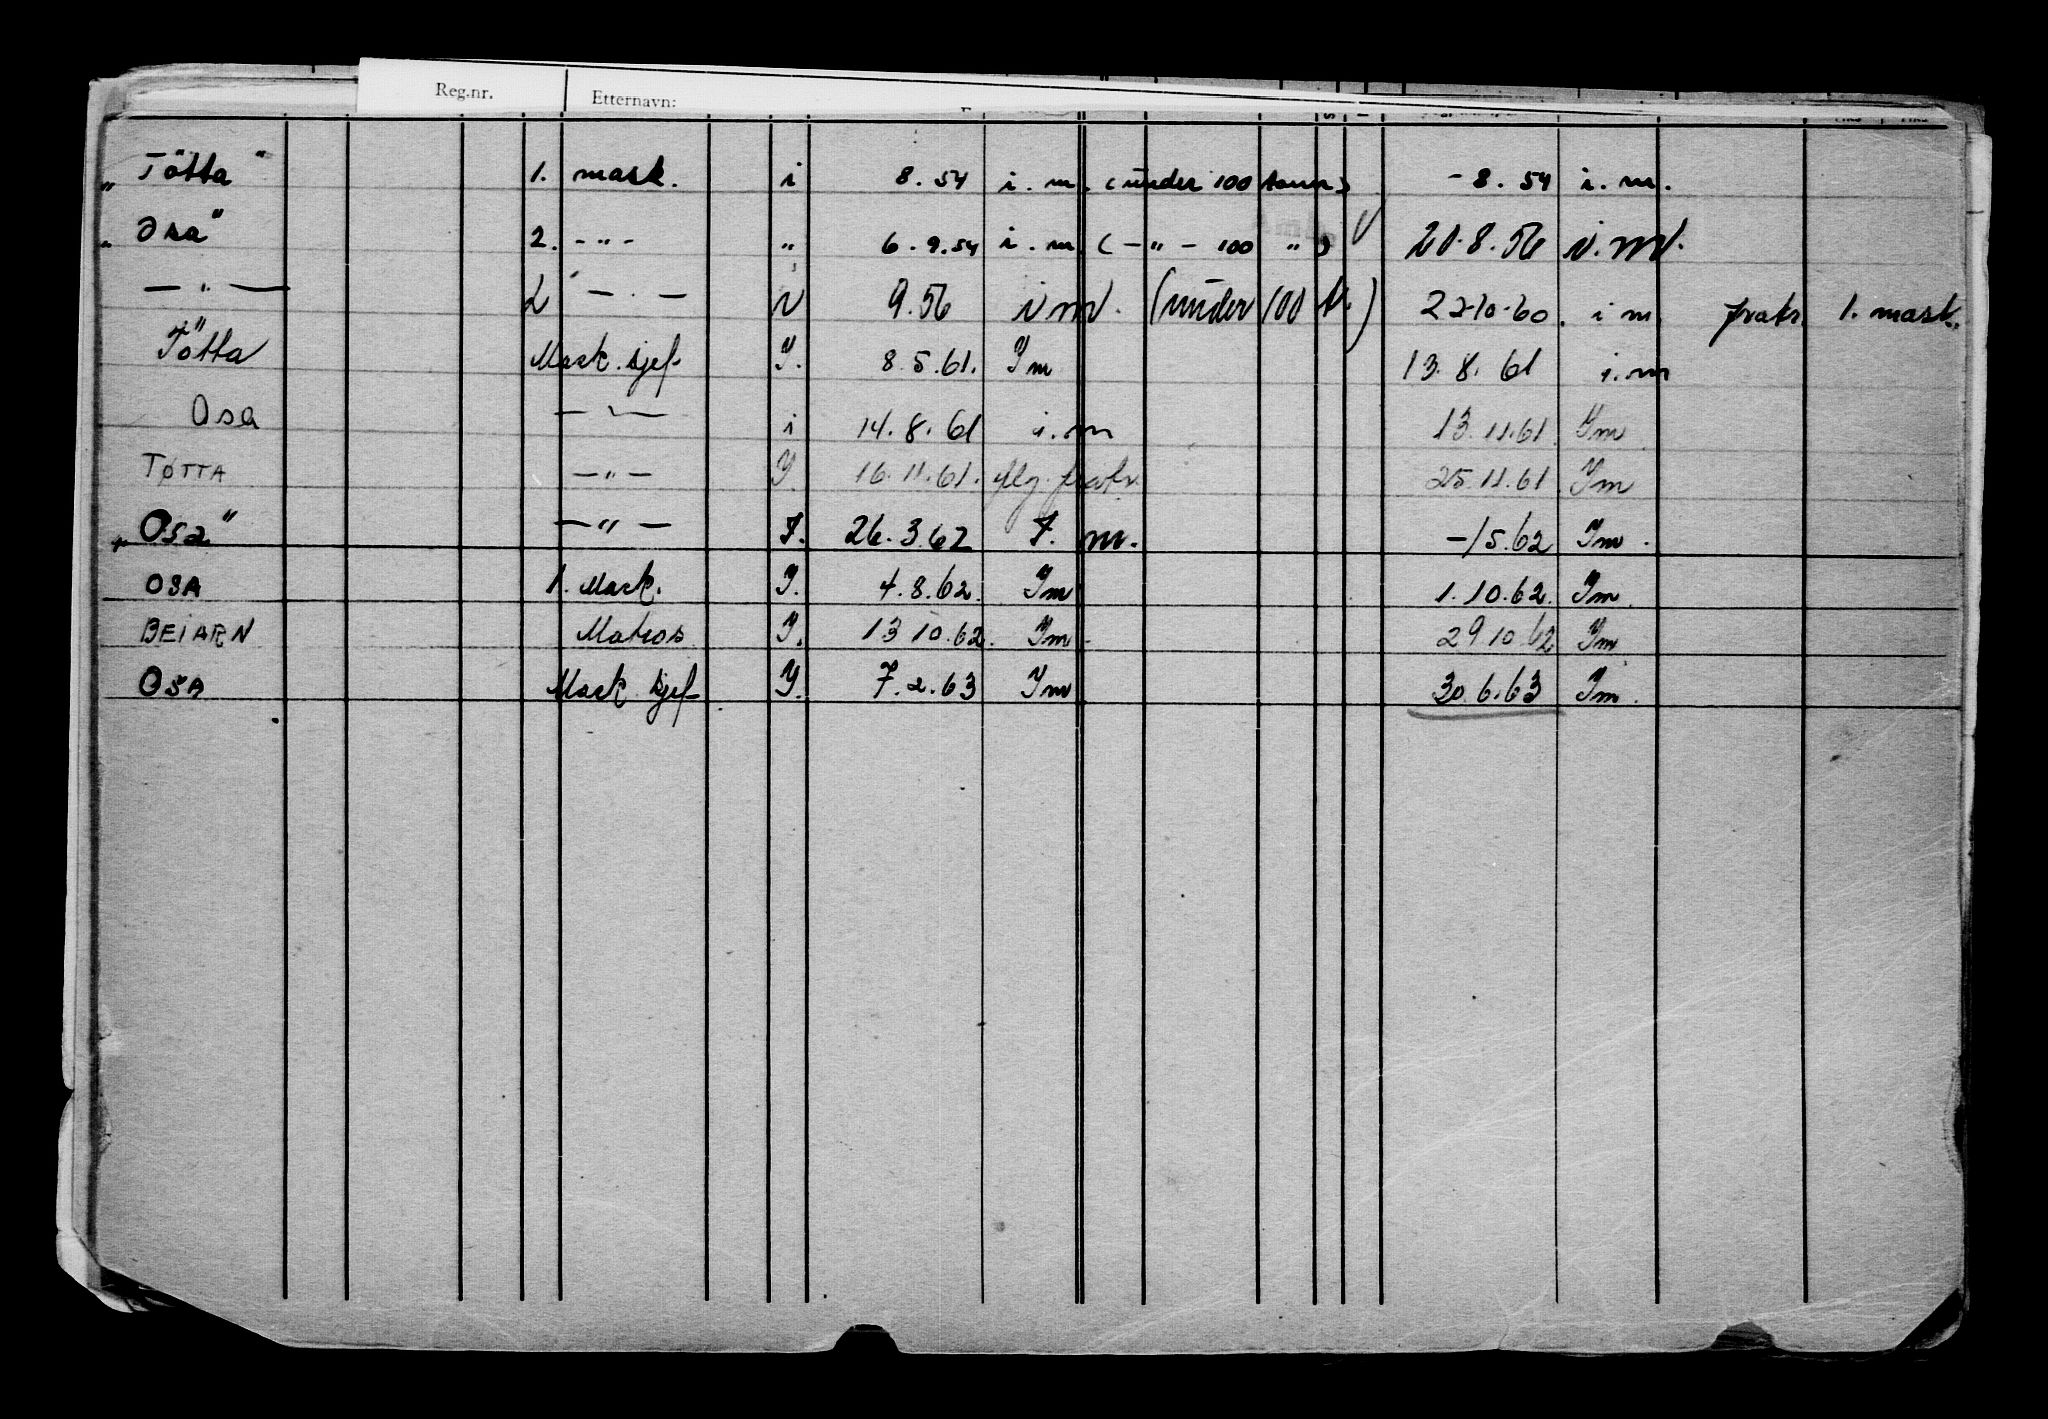 Reg.nr. Etternavn:
„Tötta" 1. mask. i 8.54 i.m. (under 100 tonn) - 8.54 i.m.
„Osa" 2. -„- „ 6.9.54 i.m. (-„- 100 „) 21.8.56 i.m.
-„- 2 -„- i 9.56 i m. (under 100 t.) 22-10-60. i m. fratr. 1. mask.
Tötta Mask.sjef I. 8.5.61. Im 13.8.61 i.m
Osa -„- i 14.8.61 i.m 13.11.61 Im
TØTTA -„- I. 16.11.61. flg. fratr. 25.11.61 Im
„Osa" -„- I. 26.3.62 I. m. -/5.62 Im.
OSA 1. Mask. I. 4.8.62. Im 1.10.62. Im.
BEIARN Matros I. 13 10.62. Im. 29 10.62 Im
OSA Mask sjef I. 7.2.63 Im 30.6.63 Im.